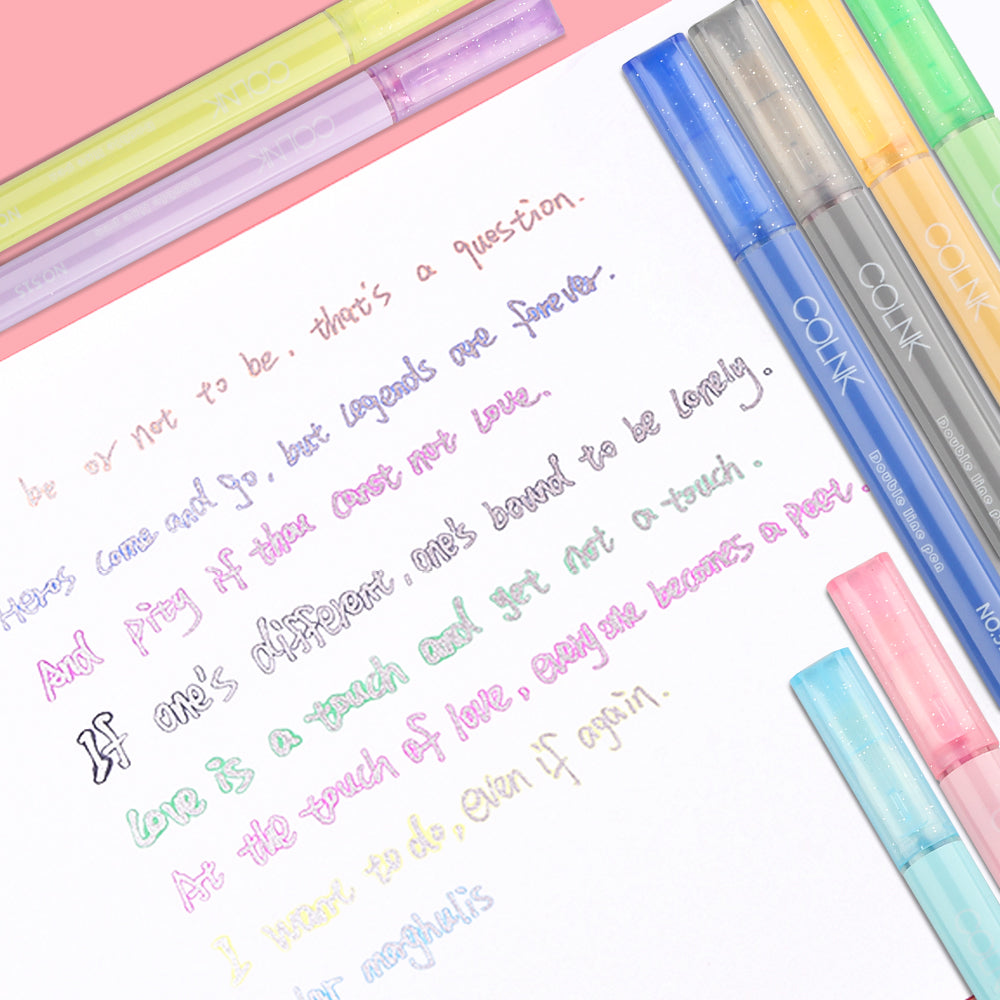 COLNK
COLNK
NO.515
be or not to be. that's a question.
Heros come and go, but legends are forever.
And pity if thou canst not love.
If one's different, one's bound to be lonely.
Love is a touch and get not a touch.
At the touch of love, every one becomes a poet.
I want to do, even if again.
lor morghulis
COLNK
Double line pen
NO.5
COLNK
Double line
COLNK